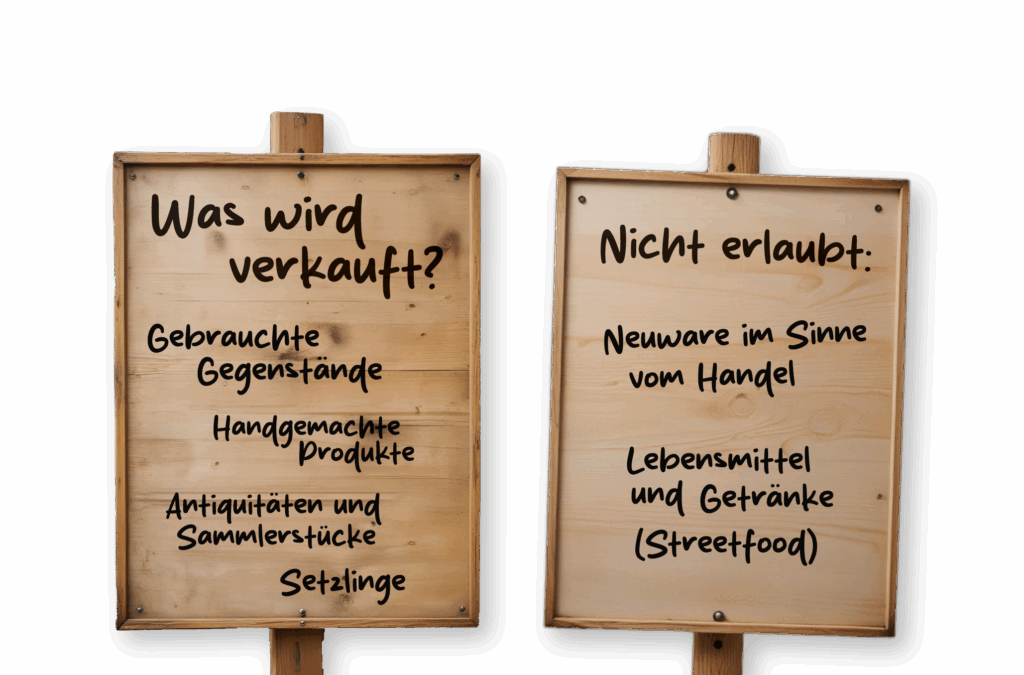 Was wird
verkauft?
Gebrauchte
Gegenstände
Handgemachte
Produkte
Antiquitäten und
Sammlerstücke
Setzlinge
Nicht erlaubt:
Neuware im Sinne
vom Handel
Lebensmittel
und Getränke
(Streetfood)